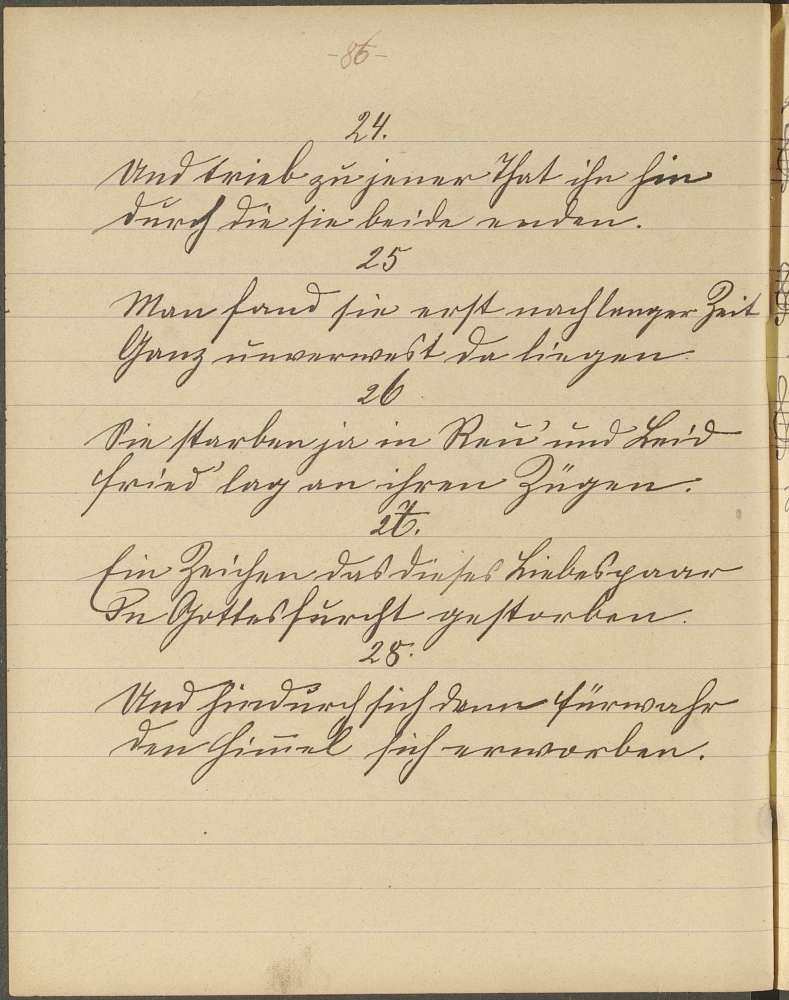 -86-
24.
Und trieb zu jener That ihn hin
durch die sie beide enden.
25
Man fand sie erst nach langer Zeit
Ganz unverwest da liegen.
26
Sie starben ja in Reu' und Leid
Fried' lag an ihren Zügen.
27.
Ein Zeichen das dieses Liebespaar
In Gottesfurcht gestorben.
28.
Und hindurch sich dann fürwahr
den Himmel sich erworben.